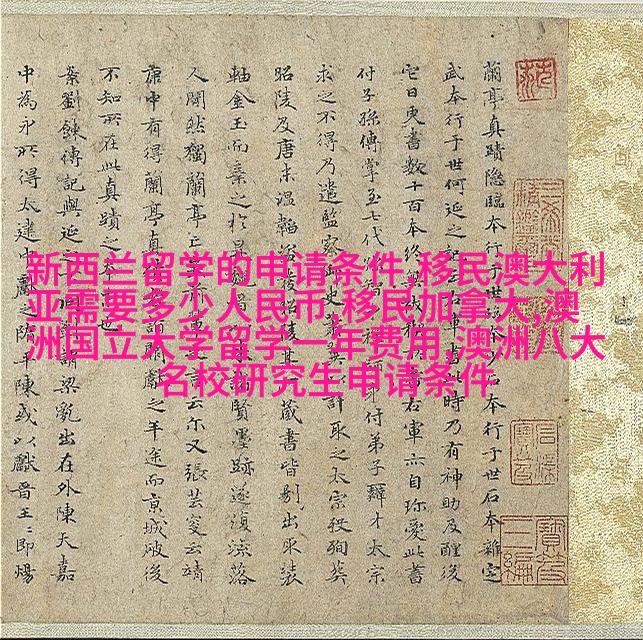 新西兰留学的申请条件,移民澳大利
亚需要多少人民币,移民加拿大,澳
洲国立大学留学一年费用,澳洲八大
名校研究生申请条件
蘭亭真蹟隐臨本行于世本行于世石本雜定
武本行于世何延之記云右軍書此時乃有神助及醒後
它日更書數十百本終右軍亦自珍愛此書
付子孫傳掌至七代付弟子辯才太宗
求之不得乃遣監察御史計取之太宗殁殉葬
昭陵及唐末温韜昭陵其藏書皆剔出取裝
軸金玉而棄之於是諸賢墨跡遂復流落
人間然獨蘭亭亡云尔又張芸叟云靖
康中有得蘭亭真獻之半途而京城破後
不知所在此真蹟之本
蔡劉餗傳記與延之不同梁亂出在外陳天嘉
中為永所得太建中獻之隋平陳或以獻晉王王即煬